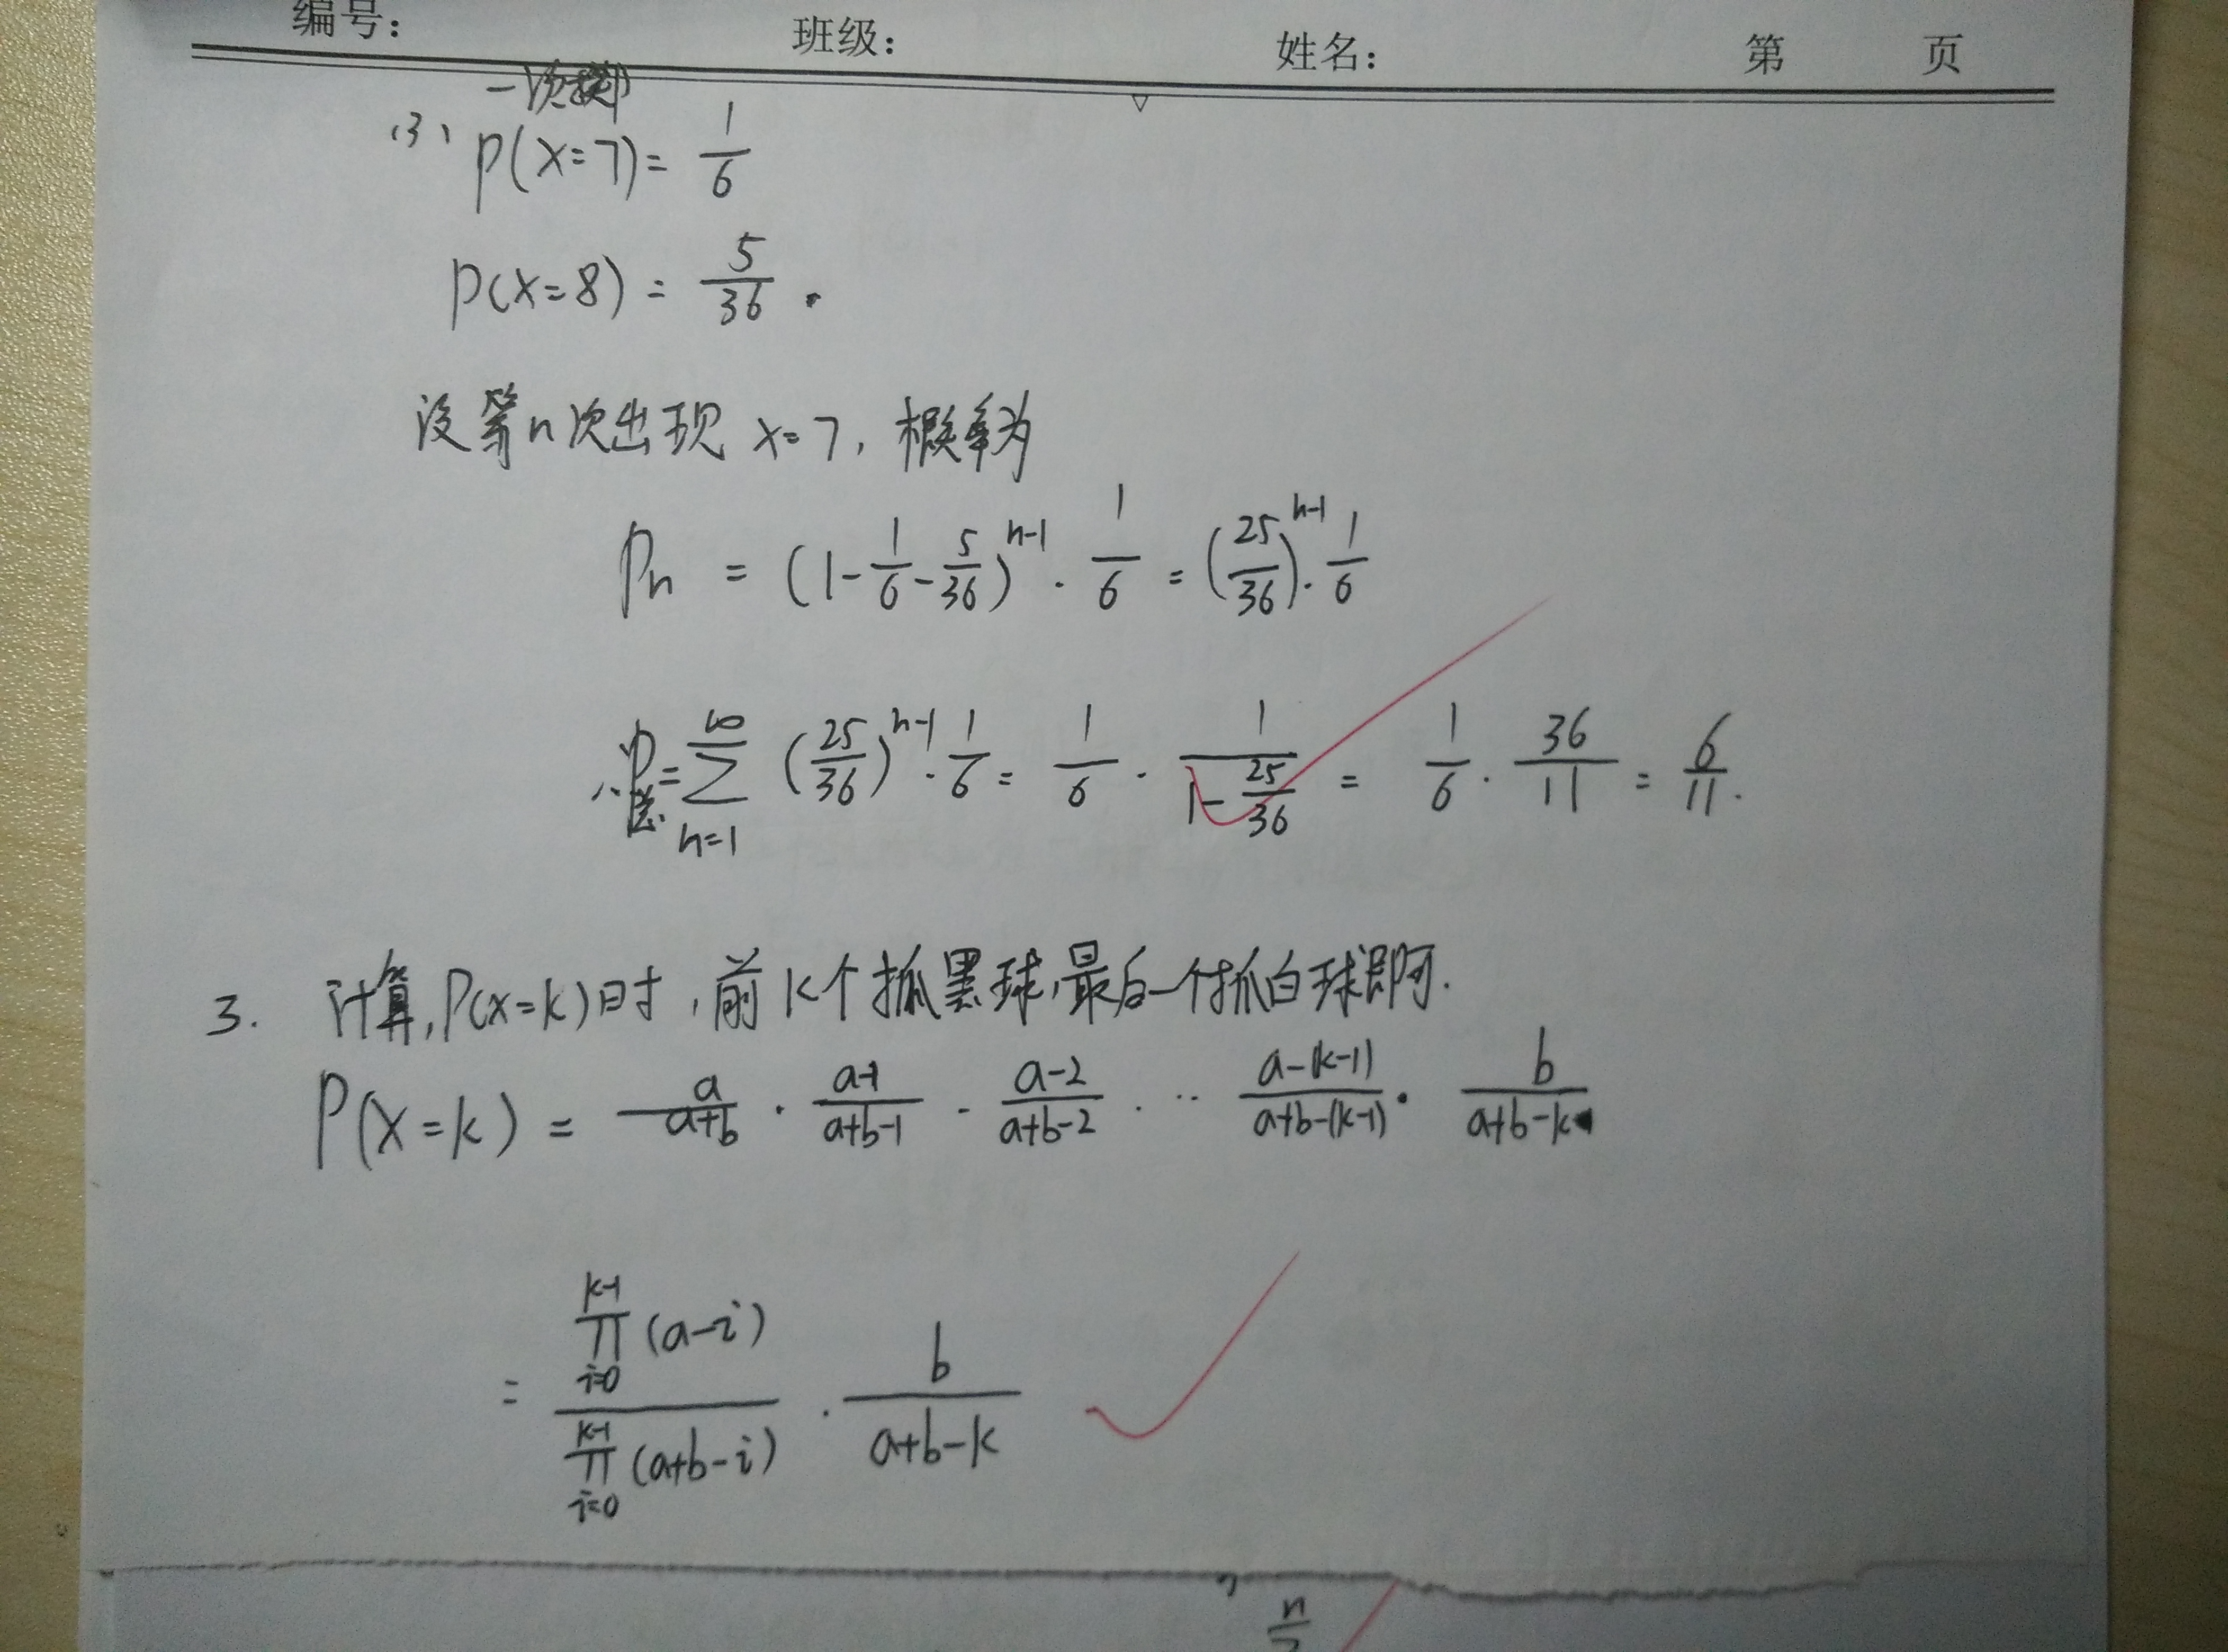 编号： 班级： 姓名： 第 页
(3) P(X=7)= 1/6
P(X=8) = 5/36 .
设第n次出现 X=7, 概率为
Pn = (1-1/6-5/36)^(n-1) · 1/6 = (25/36)^(n-1) · 1/6
∴ P = ∑_(n=1)^∞ (25/36)^(n-1) · 1/6 = 1/6 · 1/(1-25/36) = 1/6 · 36/11 = 6/11.
3. 计算, P(X=k)时, 前k个抓黑球, 最后一个抓白球即可.
P(X=k) = a/(a+b) · (a-1)/(a+b-1) · (a-2)/(a+b-2) · ·· (a-(k-1))/(a+b-(k-1)) · b/(a+b-k)
= ∏_(i=0)^(k-1) (a-i) / ∏_(i=0)^(k-1) (a+b-i) · b/(a+b-k)
n